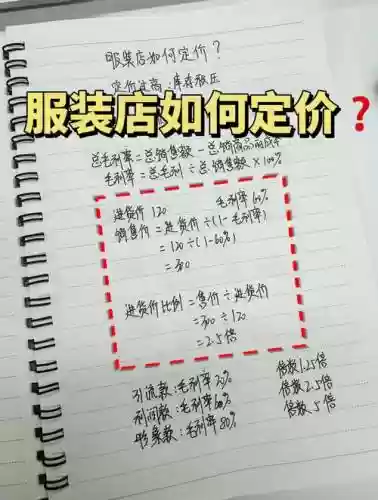 服装店如何定价?
定价过高:库存积压
服装店如何定价?
总毛利率=总销售额-总销商品的成本
毛利率=总毛利÷总销售额×100%
进货价 120 毛利率 60%
销售价=进货价÷(1-毛利率)
=120÷(1-60%)
=300
进货价比例=售价÷进货价
=300÷120
=2.5倍
引流款:毛利率20% 倍数1.25倍
利润款:毛利率60% 倍数2.5倍
形象款:毛利率80% 倍数5倍